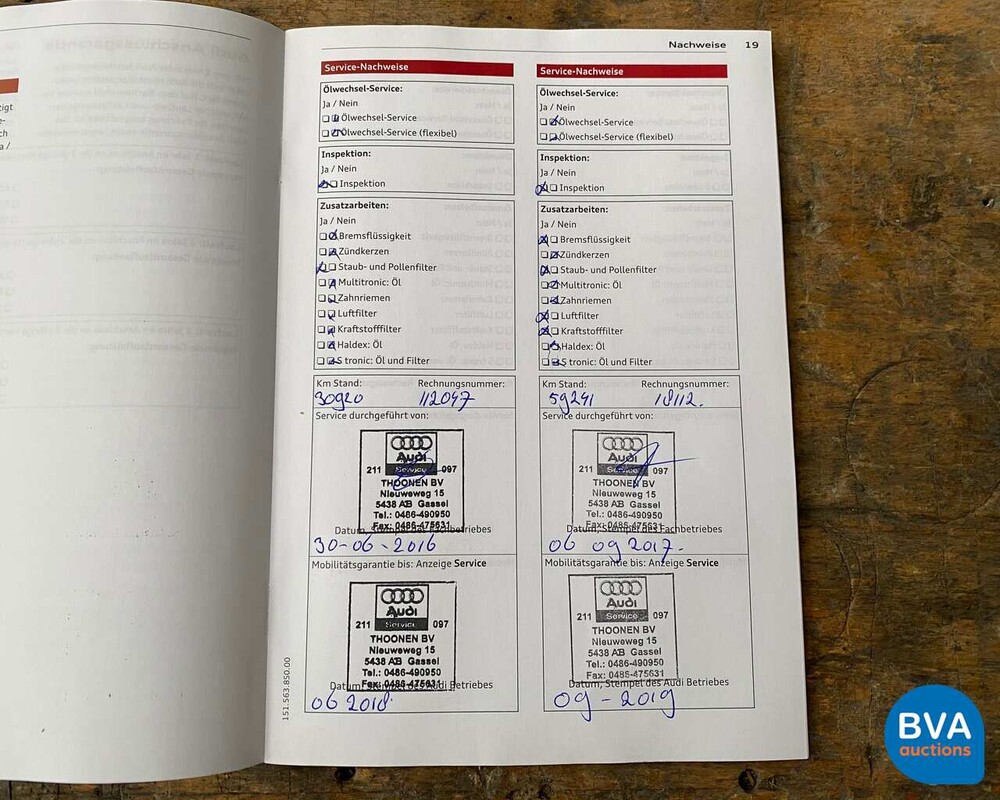 Nachweise 19
Service-Nachweise
Ölwechsel-Service:
Ja / Nein
Ölwechsel-Service
Ölwechsel-Service (flexibel)
Inspektion:
Ja / Nein
Inspektion
Zusatzarbeiten:
Ja / Nein
Bremsflüssigkeit
Zündkerzen
Staub- und Pollenfilter
Multitronic: Öl
Zahnriemen
Luftfilter
Kraftstofffilter
Haldex: Öl
S tronic: Öl und Filter
Km Stand: Rechnungsnummer:
30920 112047
Service durchgeführt von:
Audi
211 Service 097
THOONEN BV
Nieuweweg 15
5438 AB Gassel
Tel.: 0486-490950
Fax: 0486-475631
Datum, Stempel des Fachbetriebes
30-06-2016
Mobilitätsgarantie bis: Anzeige Service
Audi
211 Service 097
THOONEN BV
Nieuweweg 15
5438 AB Gassel
Tel.: 0486-490950
Fax: 0486-475631
Datum, Stempel des Audi Betriebes
06 2018
151.563.850.00
Service-Nachweise
Ölwechsel-Service:
Ja / Nein
Ölwechsel-Service
Ölwechsel-Service (flexibel)
Inspektion:
Ja / Nein
Inspektion
Zusatzarbeiten:
Ja / Nein
Bremsflüssigkeit
Zündkerzen
Staub- und Pollenfilter
Multitronic: Öl
Zahnriemen
Luftfilter
Kraftstofffilter
Haldex: Öl
S tronic: Öl und Filter
Km Stand: Rechnungsnummer:
59241 18112.
Service durchgeführt von:
Audi
211 Service 097
THOONEN BV
Nieuweweg 15
5438 AB Gassel
Tel.: 0486-490950
Fax: 0486-475631
Datum, Stempel des Fachbetriebes
06 09 2017.
Mobilitätsgarantie bis: Anzeige Service
Audi
211 Service 097
THOONEN BV
Nieuweweg 15
5438 AB Gassel
Tel.: 0486-490950
Fax: 0486-475631
Datum, Stempel des Audi Betriebes
09-2019
BVA
auctions